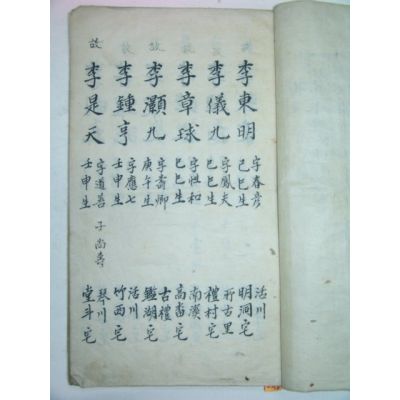 李東明 字春彦 己巳生 活川 明洞宅
李儀九 字鳳夫 己巳生 所古里 禮村宅
李章球 字性和 己巳生 高畓宅
李灝九 字壽卿 庚午生 古禮 鑑湖宅
李鍾亨 字應七 壬申生 活川 竹西宅
故 李是天 字道善 壬申生 子尚壽 琴川 堂斗宅